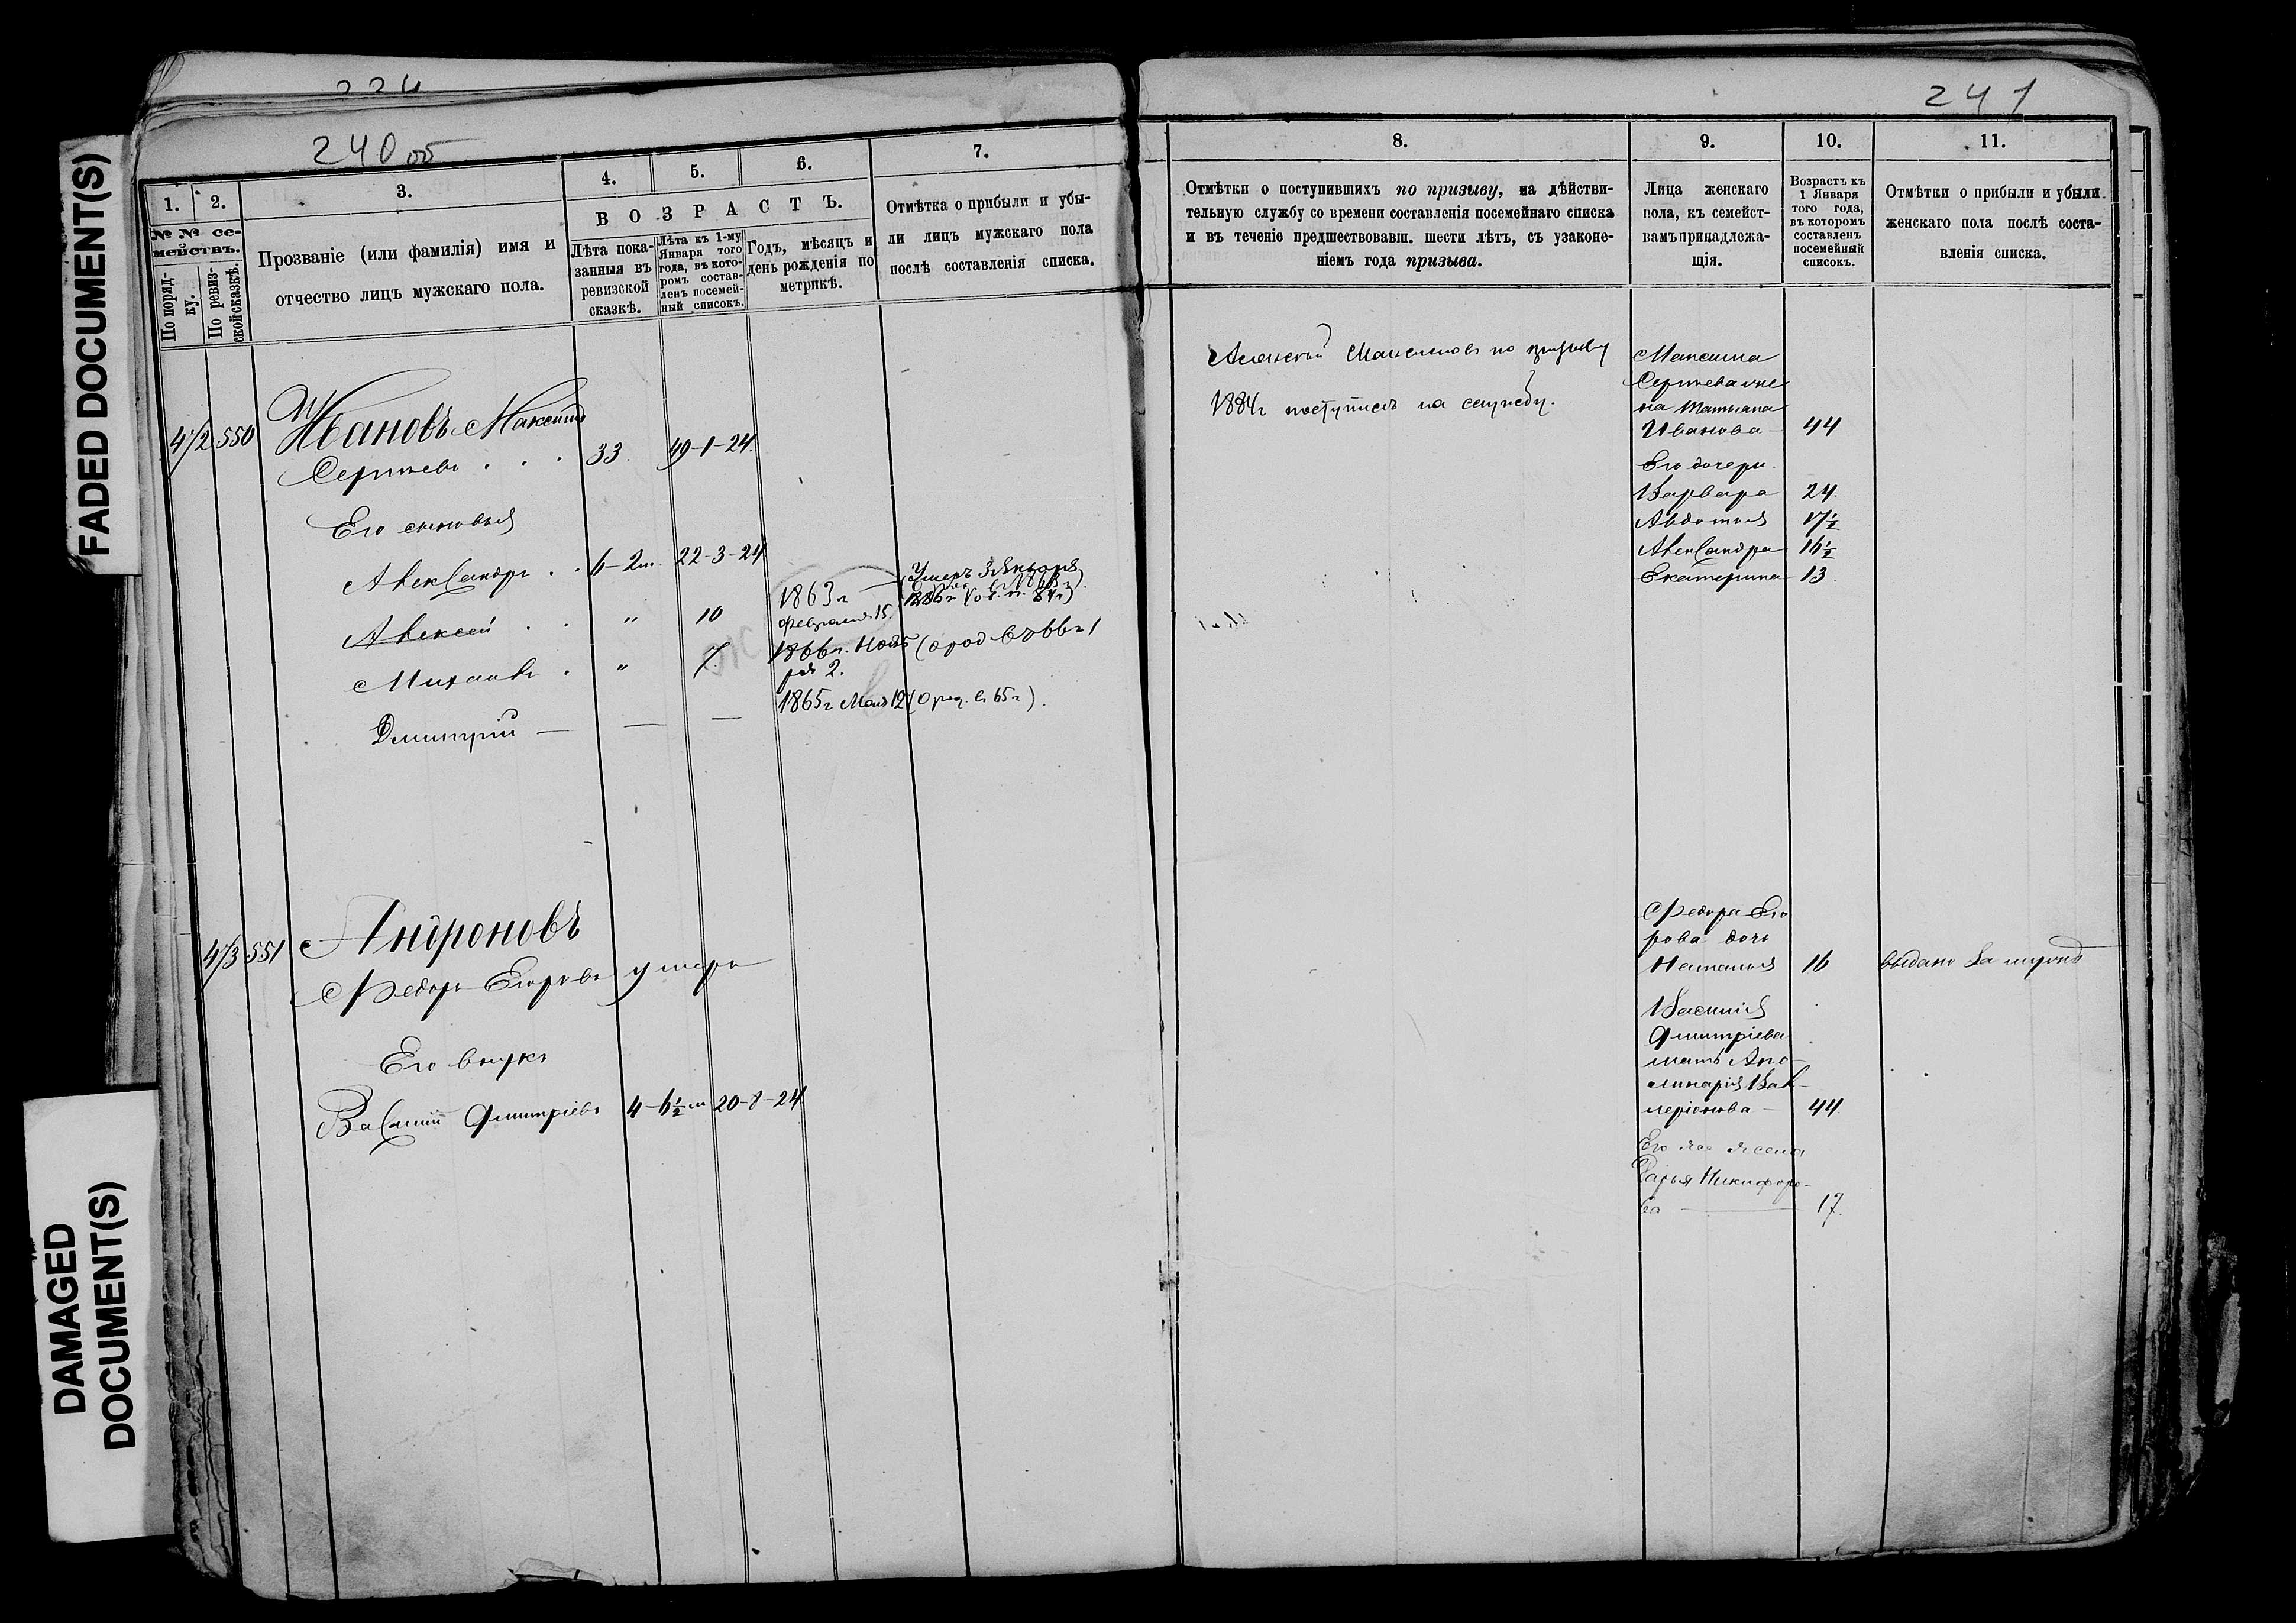 FADED DOCUMENT(S)
DAMAGED
DOCUMENT(S)
224
240 об
1.
2.
3.
4.
5.
6.
7.
№ № се-
мействъ.
По поряд-
ку.
По ревиз-
ской сказкѣ.
Прозваніе (или фамилія) имя и
отчество лицъ мужскаго пола.
ВОЗРАСТЪ.
Лѣта пока-
занныя въ
ревизской
сказкѣ.
Лѣта къ 1-му
Января того
года, въ кото-
ромъ состав-
ленъ посемей-
ный списокъ.
Годъ, мѣсяцъ и
день рожденія по
метрикѣ.
Отмѣтка о прибыли и убы-
ли лицъ мужскаго пола
послѣ составленія списка.
472 550 Ивановъ Максимъ
Сергѣевъ . . . 33. 49-1-24.
Его сыновья
Александръ . . 6-2м. 22-3-24
Алексѣй . . " 10 1863г
февраля 15
Умеръ 3 Января
1886г
Михаилъ . " 7. 1866г. Нояб
ря 2. (о род въ 66г)
Дмитрій — — — 1865г Мая 12 (о род. въ 65г).
473 551 Андроновъ
Федоръ Егоровъ умеръ
Его внукъ
Василій Дмитріевъ 4-6½м 20-8-24
241
8.
9.
10.
11.
Отмѣтки о поступившихъ по призыву, на дѣйстви-
тельную службу со времени составленія посемейнаго списка
и въ теченіе предшествовавш. шести лѣтъ, съ узаконе-
ніемъ года призыва.
Лица женскаго
пола, къ семейст-
вамъ принадлежа-
щія.
Возрастъ къ
1 Января
того года,
въ которомъ
составленъ
посемейный
списокъ.
Отмѣтки о прибыли и убыли
женскаго пола послѣ соста-
вленія списка.
Алексѣй Максимовъ по призыву
1884г поступилъ на службу.
Максима
Сергѣева же
на Татьяна
Иванова — 44
Его дочери
Варвара 24.
Авдотья 17½
Александра 16½
Екатерина 13.
Федора Его
рова дочь
Наталья 16 выдана за мужъ
Василія
Дмитріева
мать Апо-
линарія Вал-
леріонова — 44.
Его жена
Дарья Никифоро-
ва — 17.